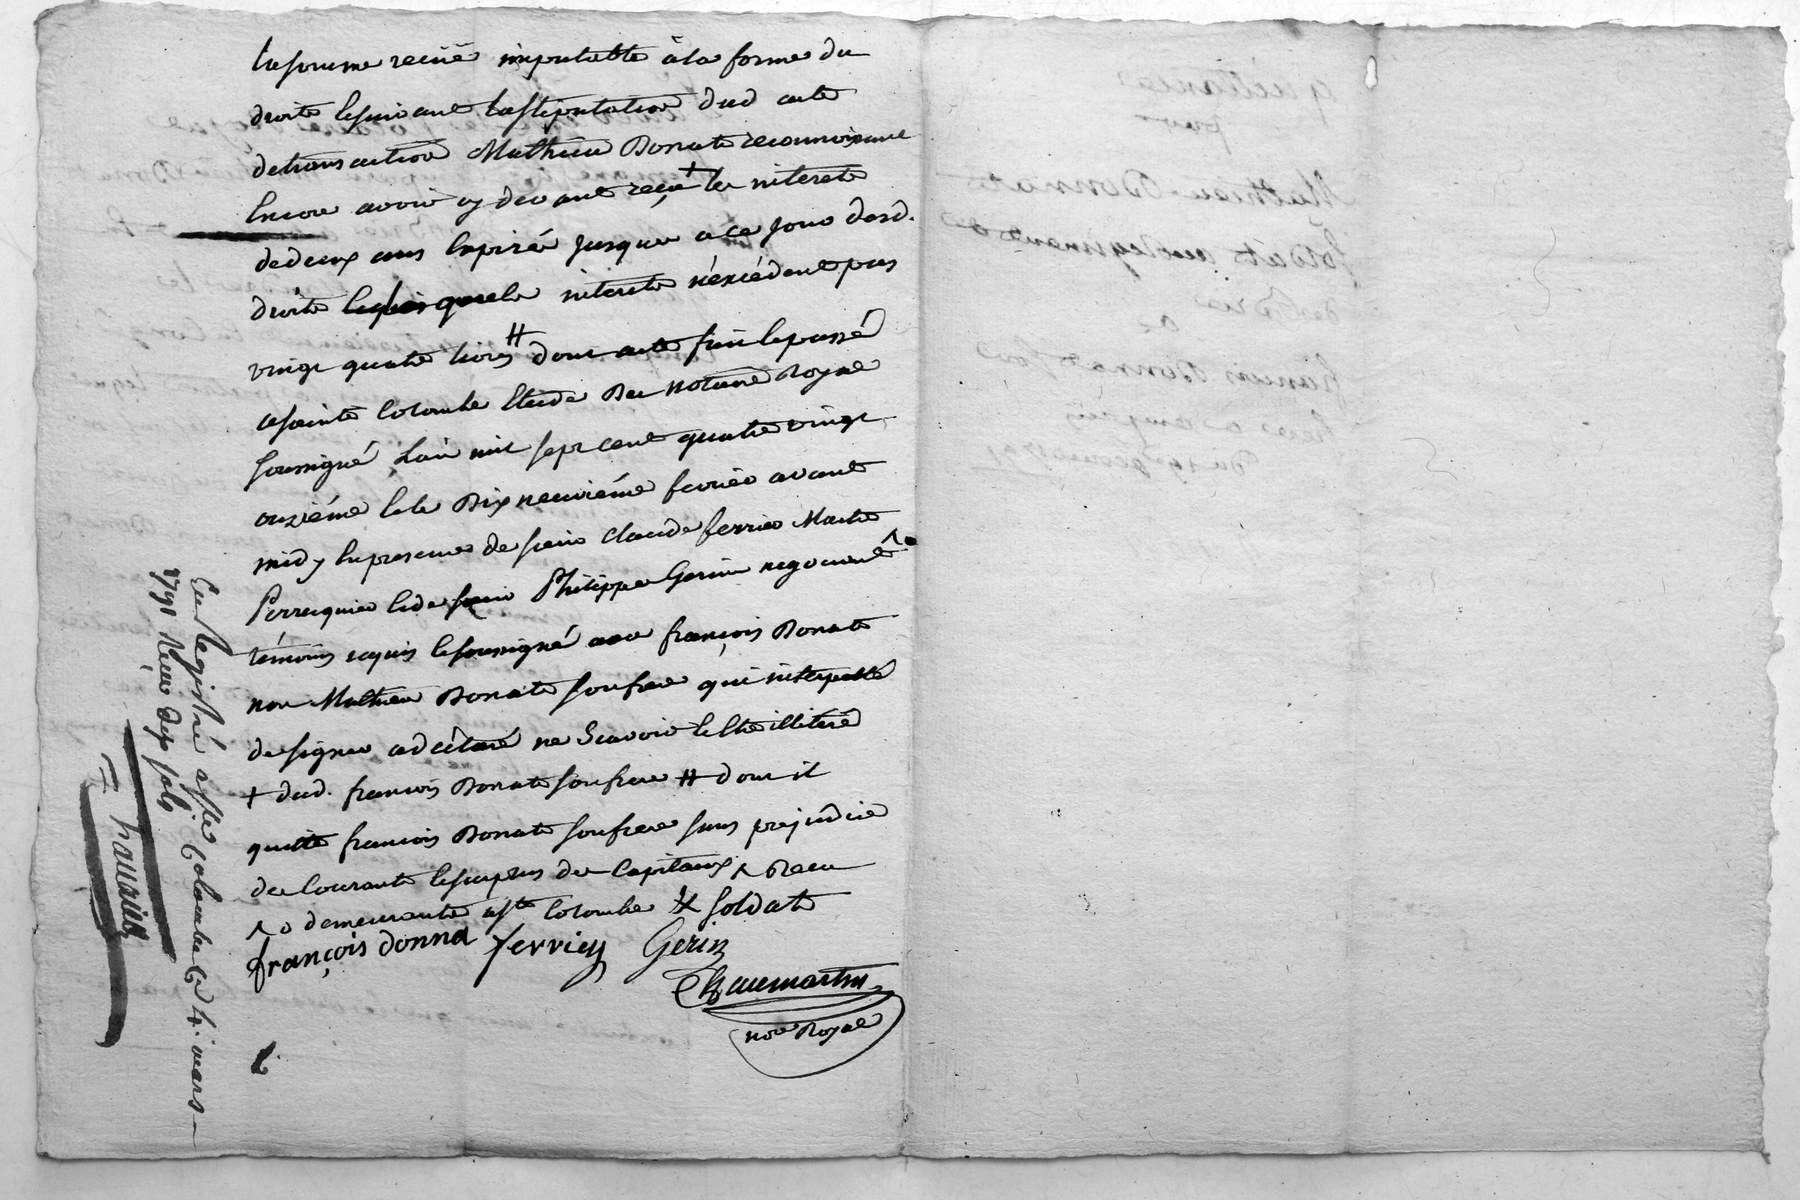 la somme reçüe imputable à la forme du
droit et suivant la stipulation dud acte
de transaction Mathieu Donat reconnoissant
encore avoir cy devant reçu + les interets
de deux ans expirés jusques a ce jour desd.
droits lesquels interets n'excédent pas
vingt quatre livres # dont acte fait et passé
a sainte Colombe etude du notaire Royal
soussigné L'an mil sept cent quatre vingt
onzième et le Dix neuvième fevrier avant
midy en presence de sieur Claude ferrier Maitre
Perruquier et de sieur Philippe Gerin negociant
témoins requis et soussigné avec françois Donat
non Mathieu Donat son frere qui interpellé
de signer a déclaré ne Scavoir et etre illiteré
+ dud. françois Donat son frere # dont il
quitte francois Donat son frere sans prejudice
des courants et surplus des Capitaux
demeurants a ste Colombe soldat
françois donna ferrier Gerin
Chaumartin
nore Royal
Enregistré a Ste Colombe le 4. mars
1791 Reçu dix sols
quittance
pour
Mathieu Donnat
soldat au regiment
a
francois Donnat son
frere